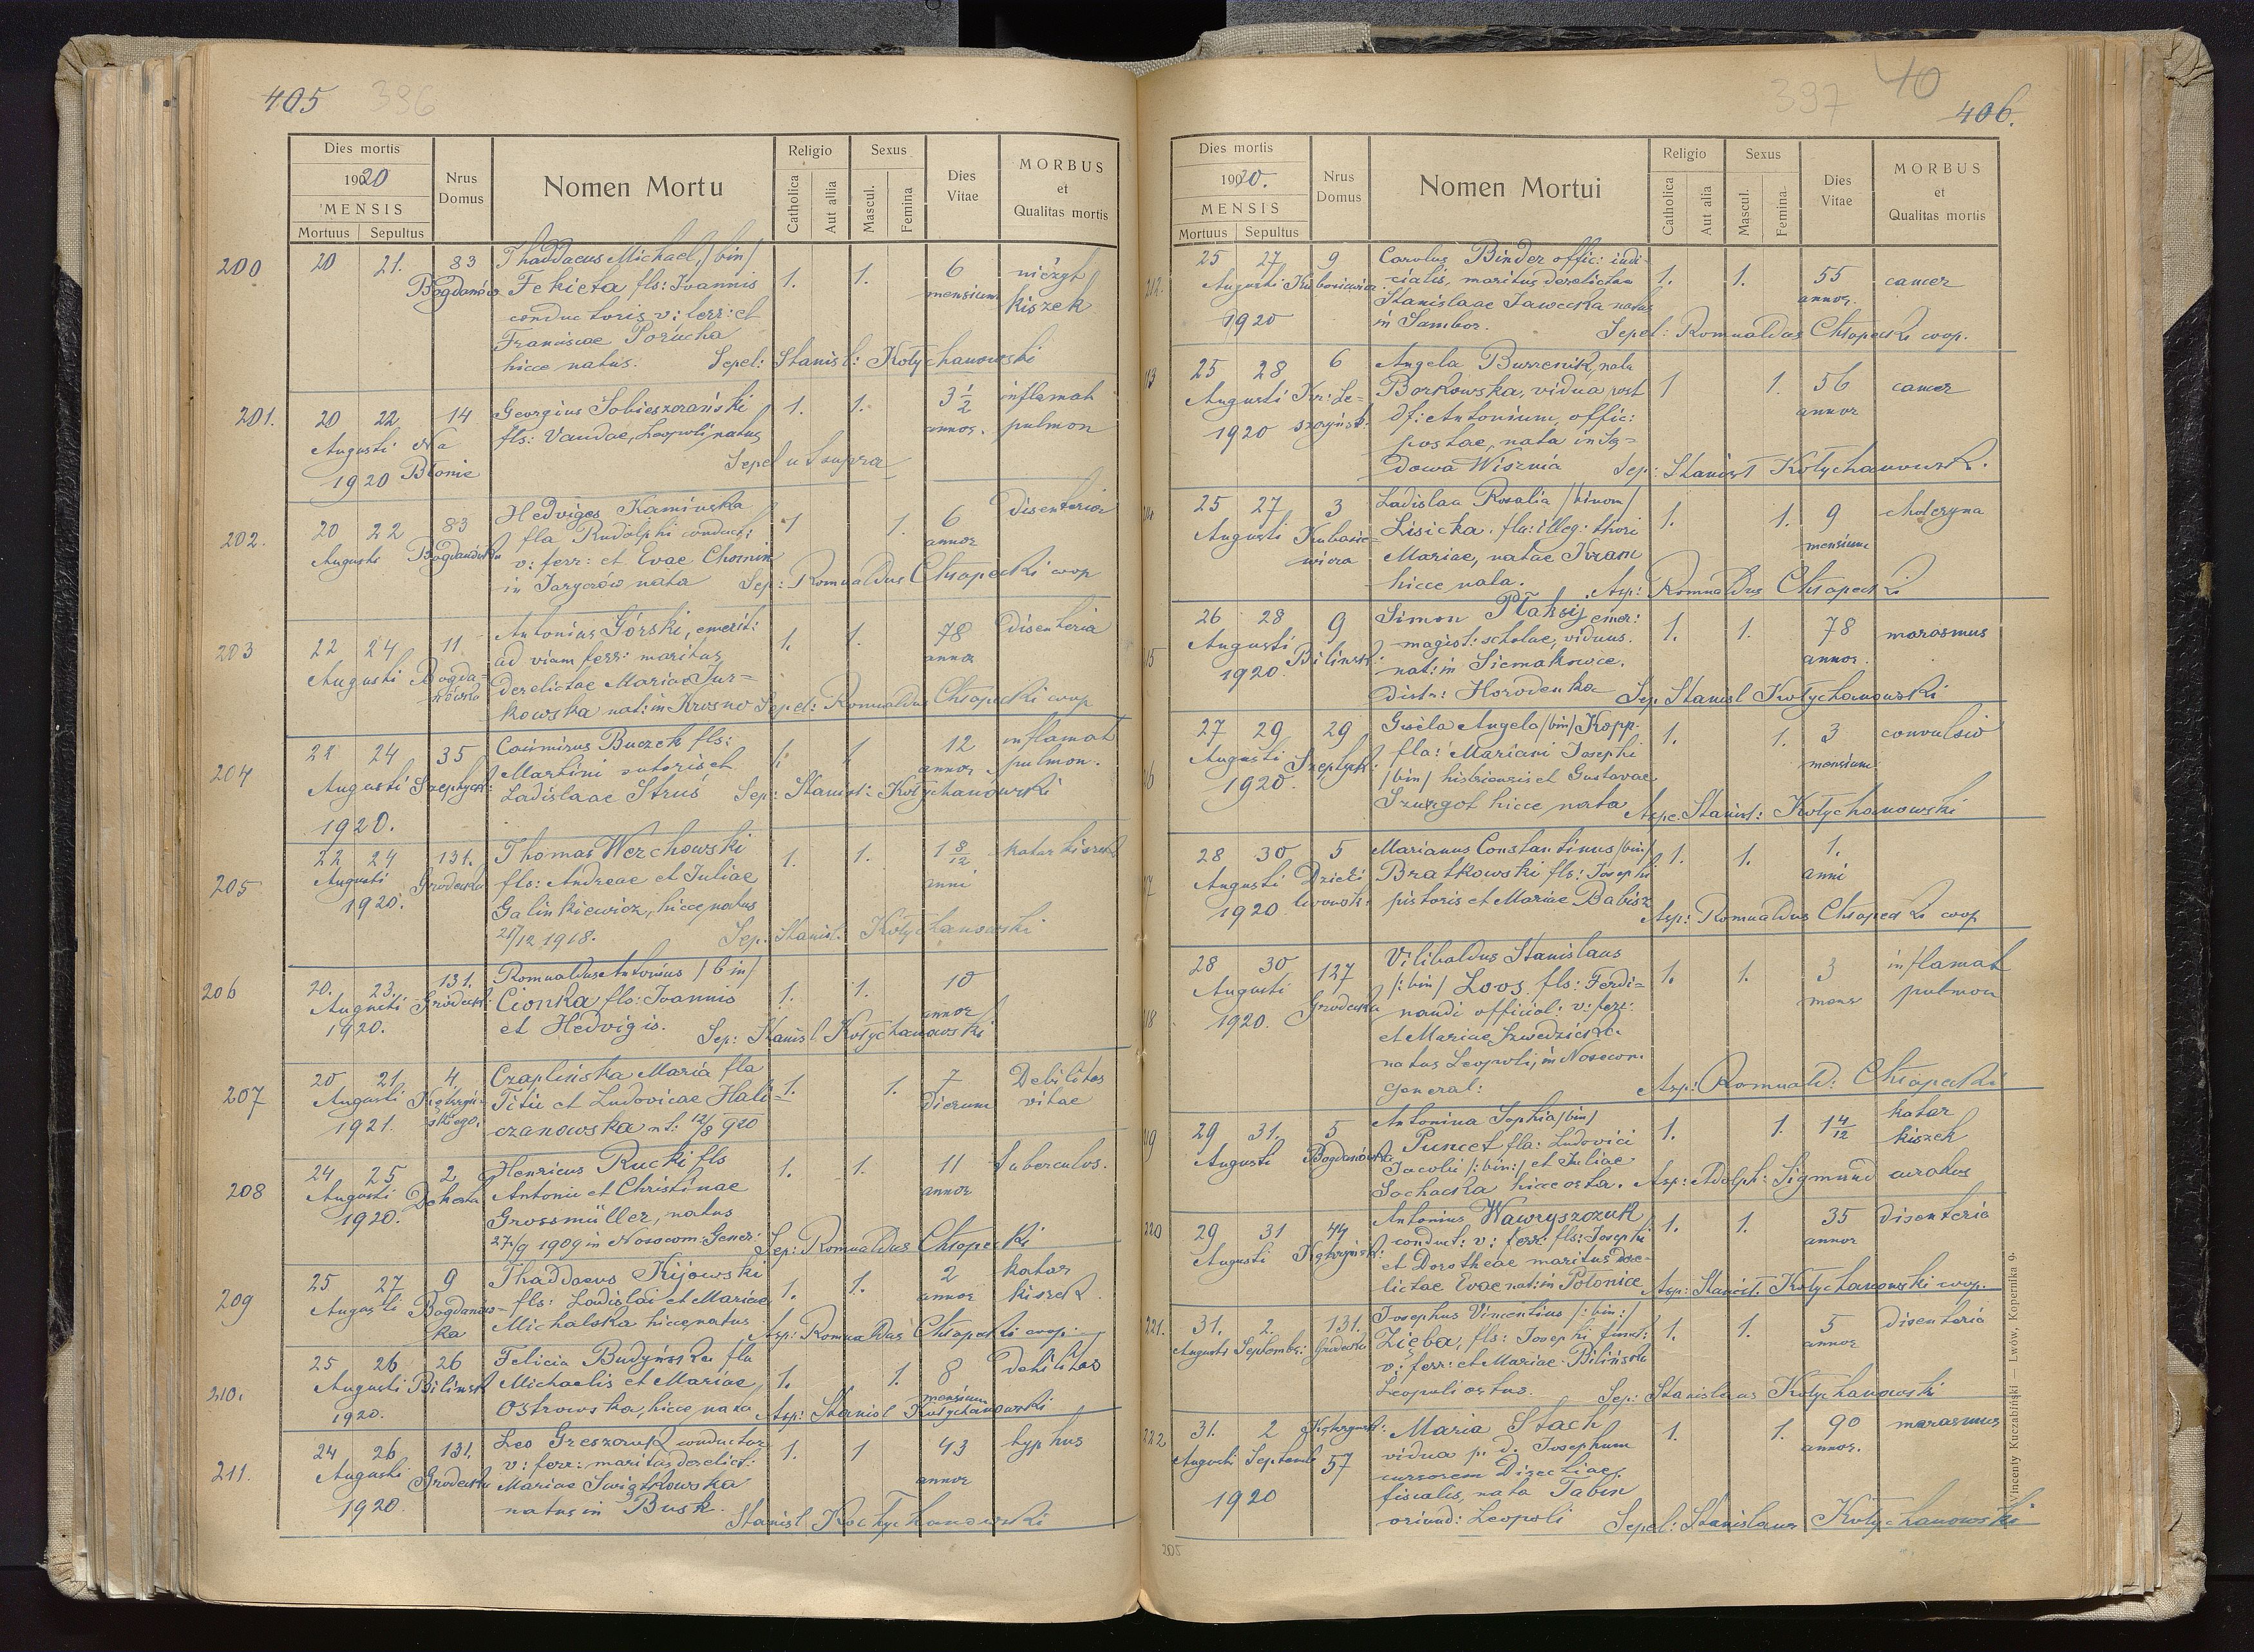 405
396
Dies mortis
1920
MENSIS
Mortuus Sepultus
Nrus
Domus
Nomen Mortu
Religio
Catholica
Aut alia
Sexus
Mascul.
Femina
Dies
Vitae
MORBUS
et
Qualitas mortis
200
20 21. 83 Thaddaeus Michael /bin/ 1. 1. 6 nieżyt
Bogdanów Fekieta fls: Joannis mensium kiszek
conductoris v: ferr: et
Franciscae Porucha
hicce natus. Sepel: Stanisl: Kotychanowski
201.
20 22 14 Georgius Sobieszczański 1. 1. 3 1/2 inflamat
Augusti Na fls: Vandae, Leopoli natus annor. pulmon
1920 Błonie Sepel ut supra
202.
20 22 83 Hedviges Kamińska 1 1. 6 disenteria
Augusti fla Rudolphi conduct: annor
v: ferr: et Evae Chomin
in Jaryczów nata Sep: Romualdus Chłopecki coop
203
22 24 11 Antonius Górski, emerit: 1. 1. 78 disenteria
Augusti Bogda- ad viam ferr: maritus annor
nówka derelictae Mariae Jur=
kowska nat: in Krosno Sepel: Romualdus Chłopecki coop
204
22 24 35 Casimirus Buczek fls: 1. 1 12 inflamat
Augusti Szeptyck: Martini sutoris et annor pulmon.
Ladislaae Struś Sep: Stanisl: Kotychanowski
1920.
205
22 24 131. Thomas Werchowski 1. 1. 1 8/12 katar kiszek
Augusti Grodecka fls: Andreae et Juliae anni
1920. Galinkiewicz, hicce natus
21/12 1918. Sep. Stanisl: Kotychanowski
206
20. 23. 131. Romualdus Antonius /bin/ 1. 1. 10
Augusti Grodeck: Cionka fls: Joannis annor
1920. et Hedvigis. Sep: Stanisl Kotychanowski
207
20 21 4. Czaplińska Maria fla 1. 1. 7 Debilitas
Augusti Kętrzyń- Titii et Ludovicae Hali= dierum vitae
1921. skiego. czanowska nt: 12/8 920
208
24 25 2 Henricus Rucki fls 1. 1. 11 tuberculos.
Augusti Dekerta Antonii et Christinae annor
1920. Grossmüller, natus
27/9 1909 in Nosocom: Gener: Sep: Romualdus Chłopecki
209
25 27 9 Thaddaeus Kijowski 1. 1. 2 katar
Augusti Bogdanów- fls: Ladislai et Mariae annor kiszek.
ka Michalska hicce natus Asp: Romualdus Chłopecki coop.
210.
25 26 26 Felicia Budyńska fla 1. 1. 8 debilitas
Augusti Bilińsk Michaelis et Mariae mensium
1920. Ostrowska, hicce nata Asp: Stanisl Kotychanowski
211.
24 26 131. Leo Greszczuk conductor 1. 1 43 typhus
Augusti Grodecka v: ferr: maritus derelict: annor
1920. Mariae Swiątkowska
natus in Busk. Stanisl Kotychanowski
397
40
406.
Dies mortis
1920.
MENSIS
Mortuus Sepultus
Nrus
Domus
Nomen Mortui
Religio
Catholica
Aut alia
Sexus
Mascul.
Femina.
Dies
Vitae
MORBUS
et
Qualitas mortis
212.
25 27 9 Carolus Binder offic: iudi 1. 1. 55 cancer
Augusti cialis, maritus derelictae annor.
1920 Stanislaae Jawecka natus
in Sambor. Sepel: Romualdus Chłopecki coop.
13
25 28 6 Angela Burzenik, nata 1 1. 56 cancer
Augusti Borkowska, vidua post annor
1920 df: Antonium, offic:
postae, nata in Są=
dowa Wisznia Sep: Stanisł Kotychanowsk.
25 27 3 Ladislaa Rosalia /binom/ 1. 1. 9 choleryna
Augusti Kubasie= Lisicka. fla: illeg: thori mensium
wicza Mariae, natae Kram
hicce nata. Asp: Romualdus Chłopecki
15
26 28 9 Simon Ptaksij emer: 1. 1. 78 marasmus
Augusti magist: scholae, viduus. annor.
1920. Bilińsk: nat: in Siemakowce.
distr: Horodenka Sep. Stanisl Kotychanowski
27 29 29 Gisela Angela /bin/ Kopp. 1. 1. 3 convulsio
Augusti Szeptyck: fla: Mariani Josephi mensium
1920. /bin/ histrionis et Gustavae
Szurgot hicce nata Aspe. Stanisl: Kotychanowski
28 30 5 Marianus Constantinus /bin/ 1. 1. 1.
Augusti Dzieci Bratkowski fls: Josephi anni
1920 lwowsk: pistoris et Mariae Babisz Asp: Romualdus Chłopecki coop
18
28 30 127 Vilibaldus Stanislaus 1. 1. 3 inflamat
Augusti Grodecka /:bin/ Loos fls: Ferdi= mens pulmon
1920. nandi official: v: ferr:
et Mariae Szwedzicka
natus Leopoli, in Nosocom.
General: Asp: Romuald: Chłopecki
19
29 31. 5 Antonina Sophia /bin/ 1. 1. 1 4/12 katar
Augusti Bogdanówka Puncet fla: Ludovici kiszek
Jacobi /:bin:/ et Juliae
Sochacka hicce orta. Asp: Adolph: Sigmund curatus
220
29 31 44 Antonius Wawryszczuk 1. 1. 35 disenteria
Augusti Kętrzyńsk: conduct: v: ferr: fls: Josephi annor
et Dorotheae maritus dere-
lictae Evae nat: in Polonice Asp: Stanisl. Kotychanowski coop.
221.
31. 2. 131. Josephus Vincentius /:bin:/ 1. 1. 5 disenteria
Augusti Septembr: Grodecka Zięba, fls: Josephi funct: annor
v: ferr: et Mariae Bilińska
Leopoli ortus. Sep: Stanislaus Kotychanowski
222
31. 2 Kętrzyńsk: Maria Stach 1. 1. 90 marasmus
Augusti Septemb 57 vidua p. d. Josephum annor.
cursorem Directiae
1920 fiscalis, nata Tabin
oriund: Leopoli Sepel: Stanislaus Kotychanowski
205
Vincenty Kuczabiński — Lwów, Kopernika 9.